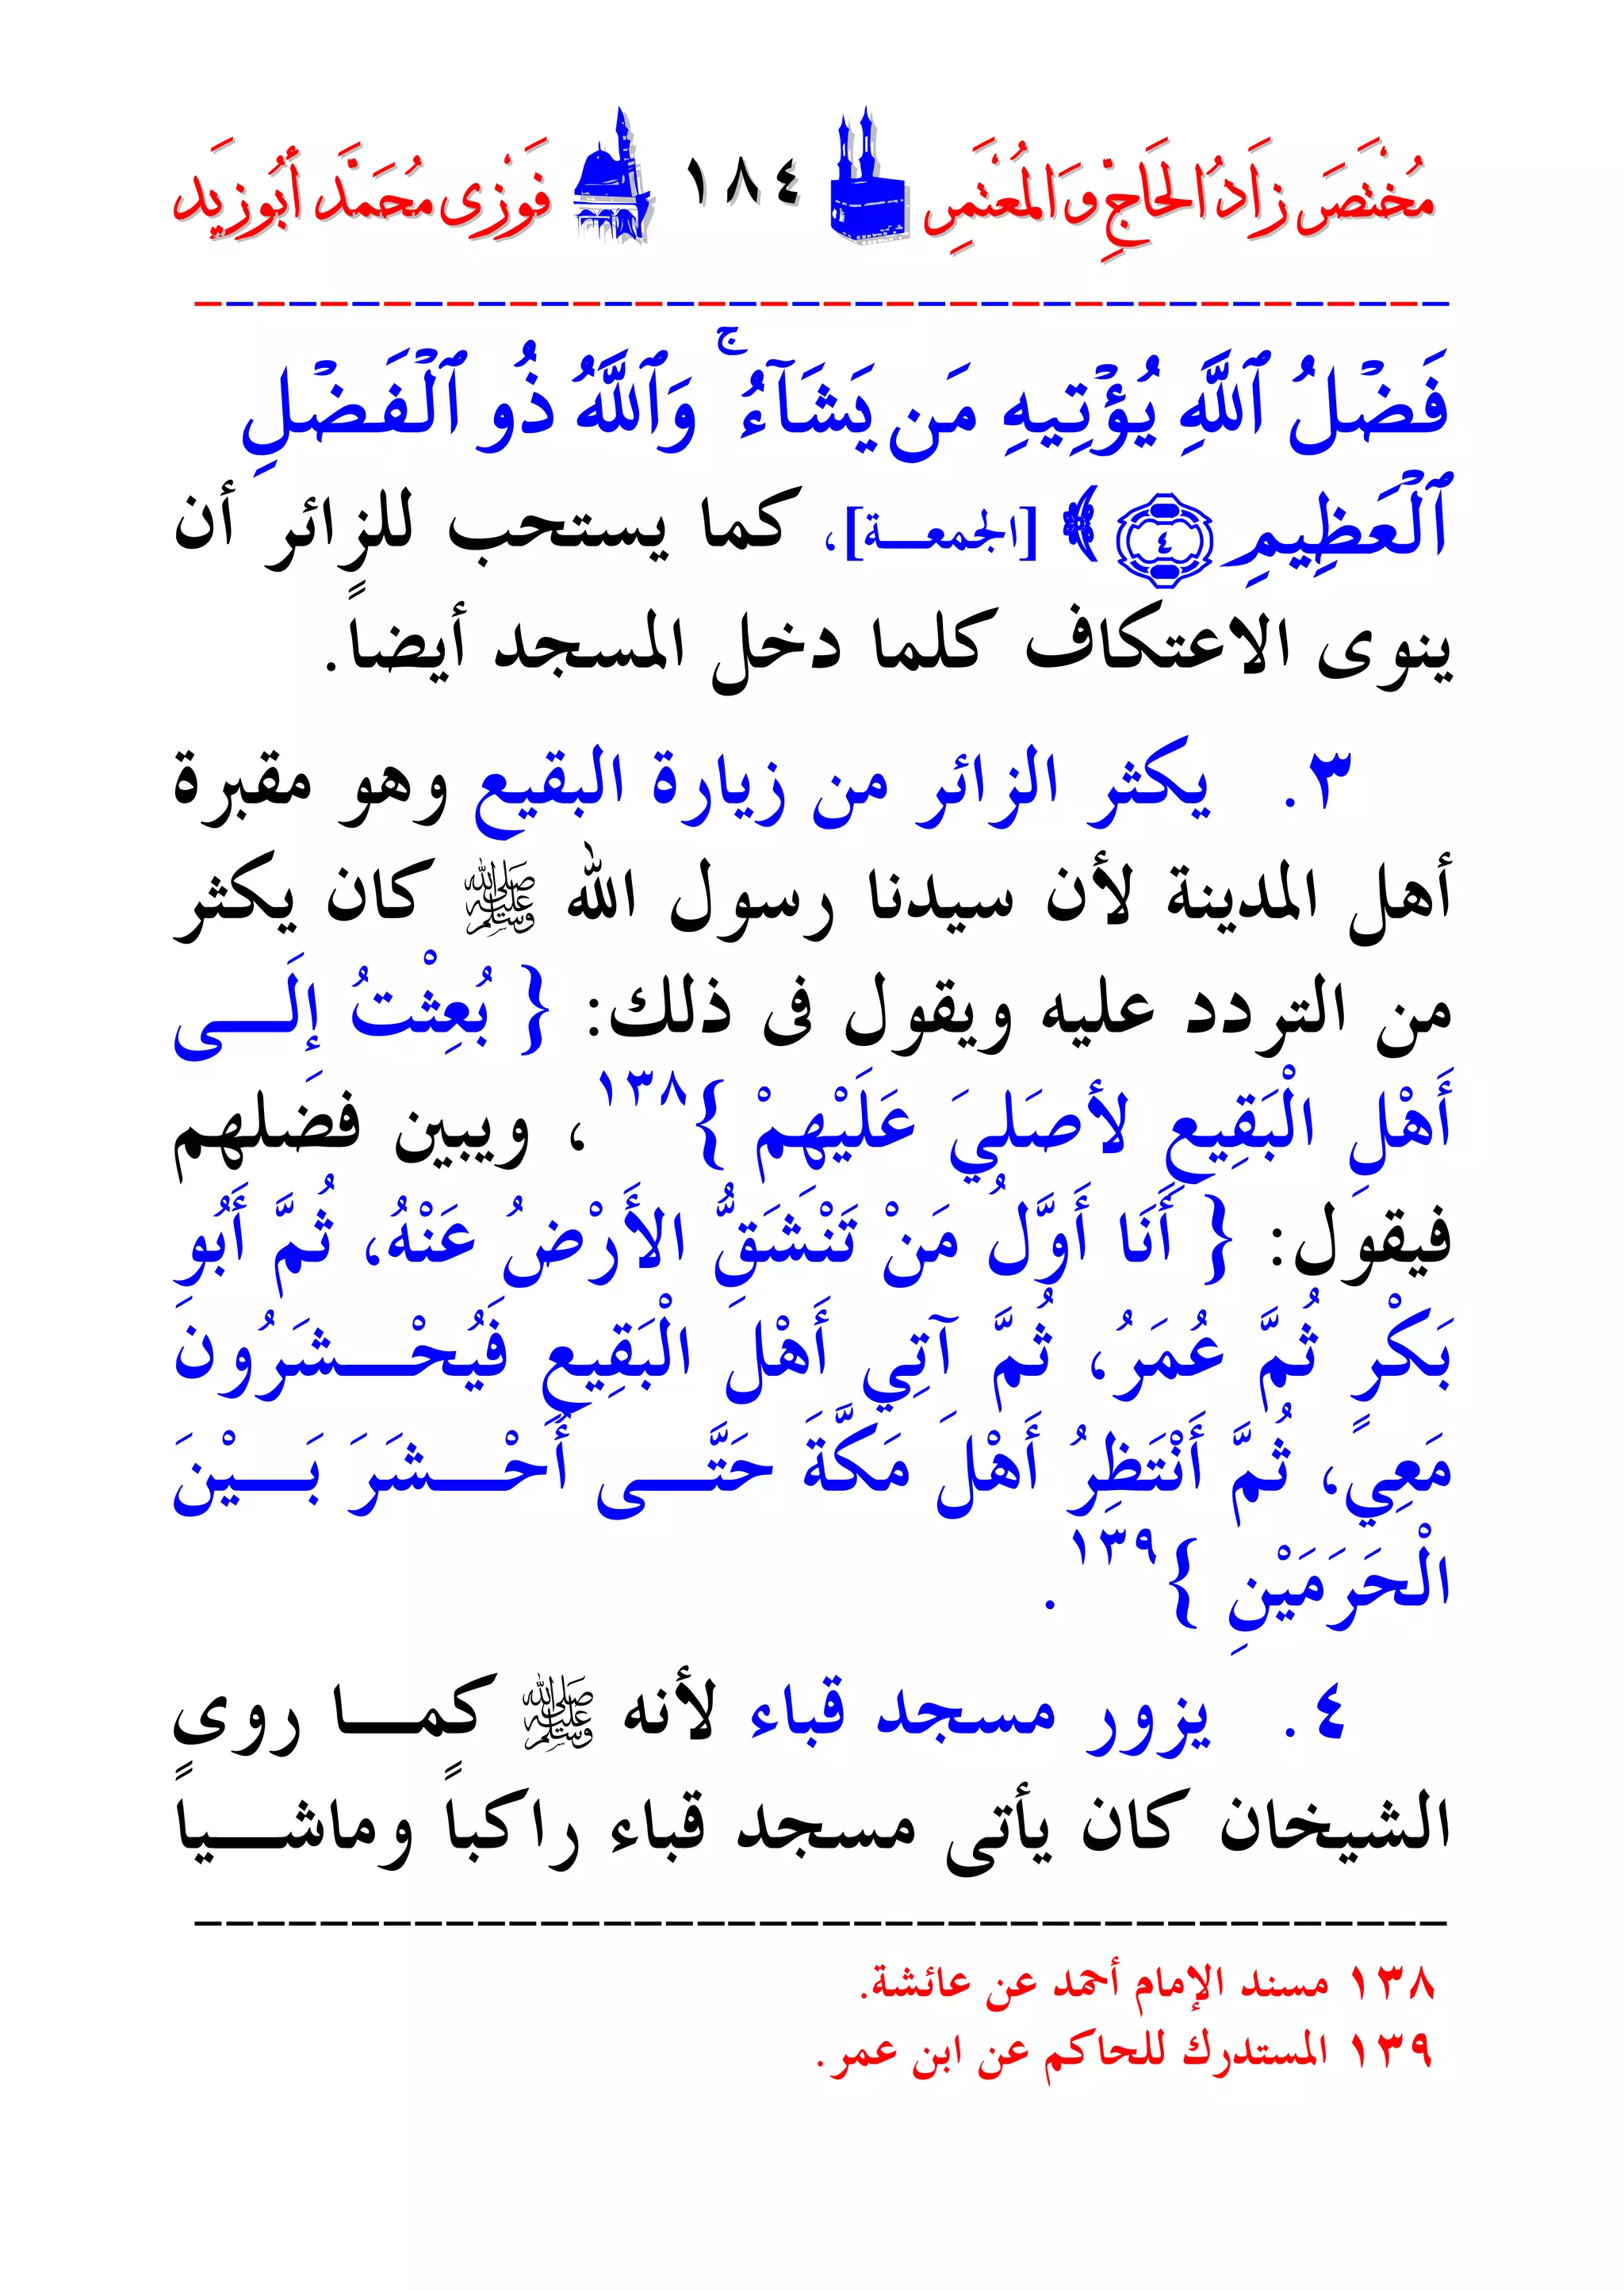 مُخْتَصَر زَادُ الحَاجِّ وَالمُعْتَمِرِ ١٨٤ فَوْزِى مُحَمَّدْ أَبُوزَيْد
فَضْلُ ٱللَّهِ يُؤْتِيهِ مَن يَشَآءُ ۚ وَٱللَّهُ ذُو ٱلْفَضْلِ
ٱلْعَظِيمِ ٤ ﴾ [الجمعـة]، كما يستحب للزائر أن
ينوى الاعتكاف كلما دخل المسجد أيضاً.
٣. يكثر الزائر من زيارة البقيع وهو مقبرة
أهل المدينة لأن سيدنا رسول الله ﷺ كان يكثر
من التردد عليه ويقول فى ذلك: { بُعِثْتُ إِلَـى
أَهْلِ الْبَقِيعِ لأصَلِيَ عَلَيْهِمْ }١٣٨ ، ويبين فضلهم
فيقول: { أَنَا أَوَّلُ مَنْ تَنْشَقُّ الأَرْضُ عَنْهُ، ثُمَّ أَبُو
بَكْرٍ ثُمَّ عُمَرُ، ثُمَّ آتِي أَهْلَ الْبَقِيعِ فَيُحْـشَرُونَ
مَعِي، ثُمَّ أَنْتَظِرُ أَهْلَ مَكَّةَ حَتَّـى أُحْـشَرَ بَـيْنَ
الْحَرَمَيْنِ }١٣٩ .
٤. يزور مسجد قباء لأنه ﷺ كمـا روى
الشيخان كان يأتى مسجد قباء راكباً وماشـياً
١٣٨ مسند الإمام أحمد عن عائشة.
١٣٩ المستدرك للحاكم عن ابن عمر.